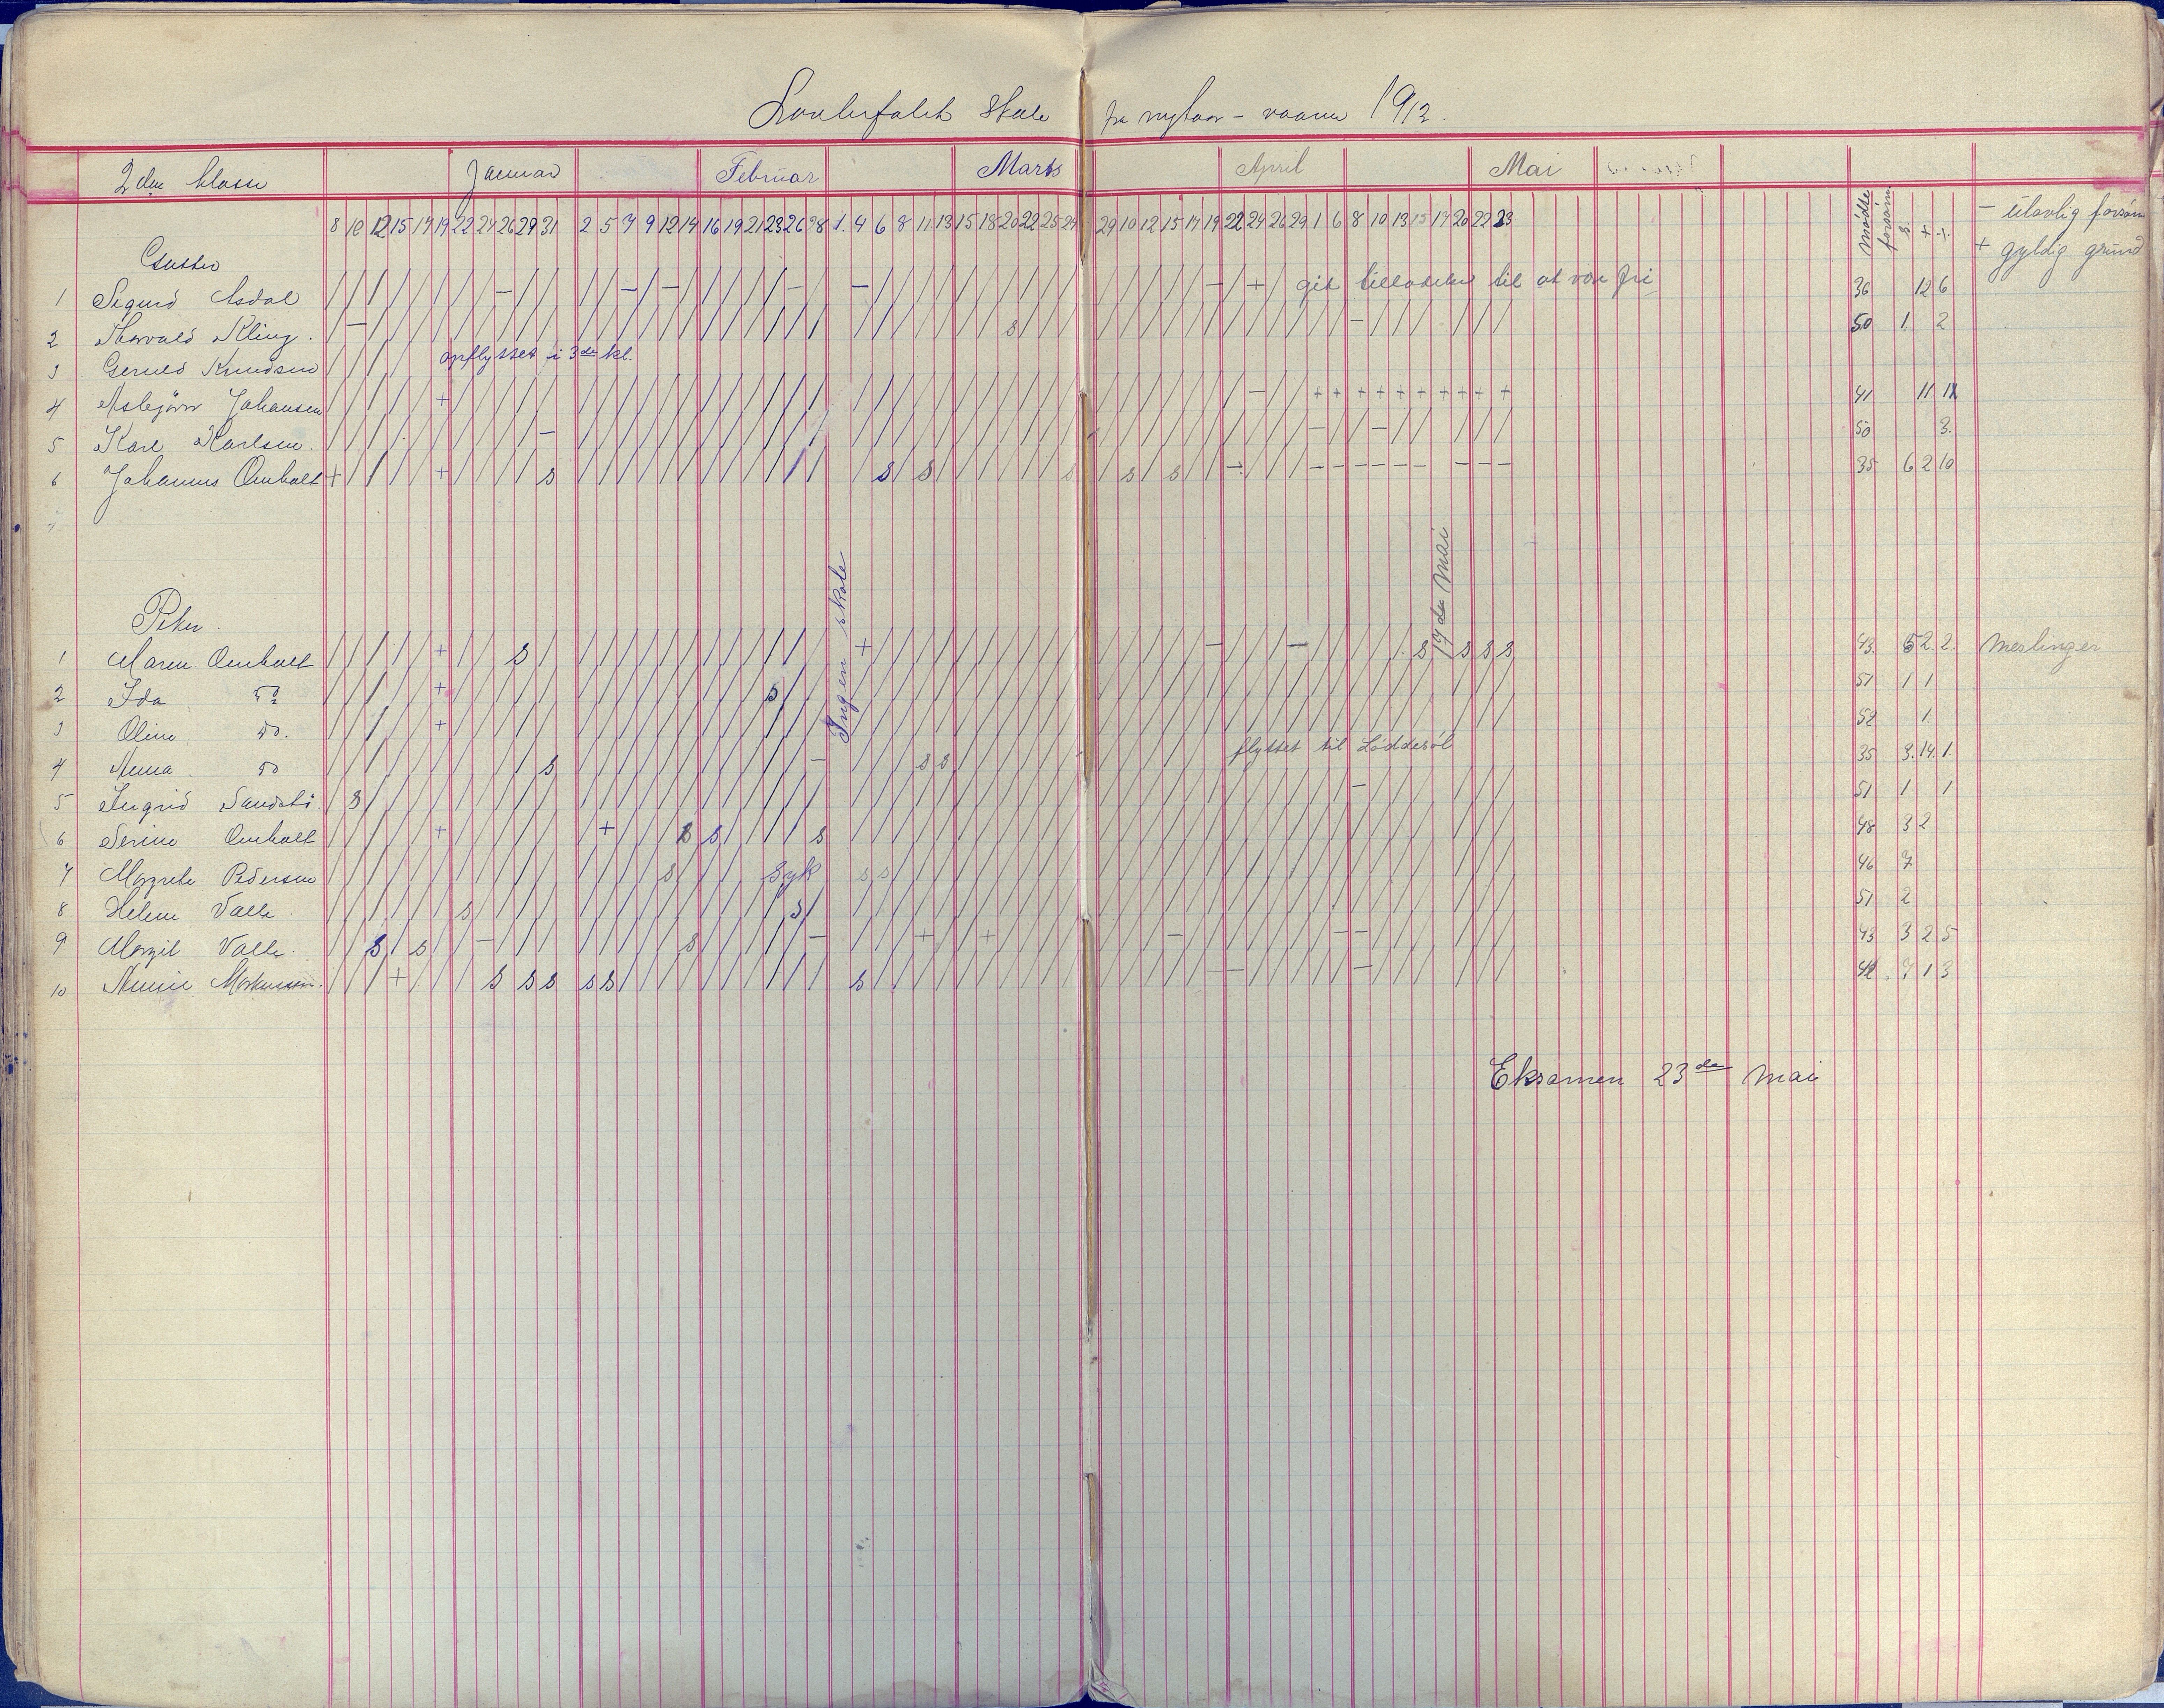 Skole fra nytaar - vaaren 1912.
2den klasse Januar Februar Marts April Mai
8 10 12 15 17 19 22 24 26 29 31 2 5 7 9 12 14 16 19 21 23 26 28 1. 4 6 8 11 13 15 18 20 22 25 27 29 10 12 15 17 19 22 24 26 29 1 6 8 10 13 15 17 20 22 23 mödte forsöm s. + -
- ulovlig forsöm
+ gyldig grund
Gutter
1 Sigurd Asdal / / / / / / / / - / / / / - / - / / / / / - / - / / / / / / / / / / / / / / / / - / + / git tilladelse til at være fri 36 12 6
2 Thorvald Kling. / - / / / / / / / / / / / / / / / / / / / / / / / / / / / / s / / / / / / / / / / / / / / - / / / / / / / 50 1 2
3 Gerued Knudsen / / / / opflyttet i 3de kl.
4 Asbjörn Johansen / / / / / + / / / / / / / / / / / / / / / / / / / / / / / / / / / / / / / / / / / - / / + + + + + + + + + + 41 11 1
5 Karl Karlsen. / / / / / / / / / / - / / / / / / / / / / / / / / / / / / / / / / / / / / / / / / / / / / - / / - / / / / / 50 3.
6 Johannes Omholt + / / / / + / / / / s / / / / / / / / / / / / / s / s / / / / / / s / s / s / / - / / / - - - - - - - - - 35 6 2 10
7
Piker.
Ingen skole
17de Mai
1 Maren Omholt / / / / / + / / / s / / / / / / / / / / / / / + / / / / / / / / / / / / / / / / - / / / - / / / / / s s s s 43. 5 2. 2. Meslinger
2 Ida do / / / / / + / / / / / / / / / / / / / / s / / / / / / / / / / / / / / / / / / / / / / / / / / / / / / / / / 51 1 1
3 Oline do. / / / / / + / / / / / / / / / / / / / / / / / / / / / / / / / / / / / / / / / / / / / / / / / / / / / / / / 52 1
4 Anna do / / / / / / / / / / s / / / / / / / / / / / - / / / s s / / / / / / / / / / / / flyttet til Löddesöl 35 3. 14. 1.
5 Ingrid Sandstö. / s / / / / / / / / / / / / / / / / / / / / / / / / / / / / / / / / / / / / / / / / / / / / - / / / / / / / 51 1 1
6 Serine Omholt / / / / / + / / / / / / + / / / s s / / / / s / / / / / / / / / / / / / / / / / / / / / / / / / / / / / / / 48 3 2
7 Margrete Pedersen / / / / / / / / / / / / / / / s / / / / Syk s s / / / / / / / / / / / / / / / / / / / / / / / / / / / / / / 46 7
8 Helene Valle / / / / / / s / / / / / / / / / / / / / / s / / / / / / / / / / / / / / / / / / / / / / / / / / / / / / / / 51 2
9 Margit Valle. / / s / s / / - / / / / / / / / s / / / / / - / / / + / / + / / / / / / / / - / / / / / / / - - / / / / / / 43 3 2 5
10 Annie Markussen. / / / + / / / s / s s s s / / / / / / / / / / s / / / / / / / / / / / / / / / / / - / / / / / - / / / / / / 42. 7 1 3
Eksamen 23de Mai